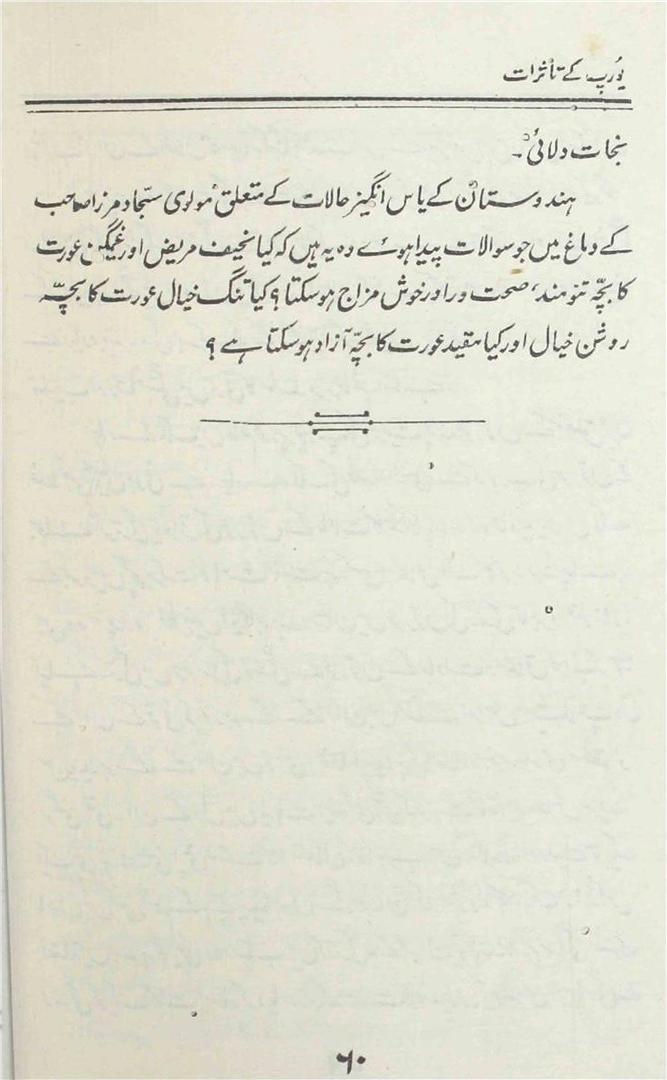 یورپ کے تاثرات
نجات دلائی۔
ہندوستان کے یاس انگیز حالات کے متعلق مولوی سجاد مرزا صاحب
کے دماغ میں جو سوالات پیدا ہوئے وہ یہ ہیں کہ کیا نحیف مریض اور غمگین عورت
کا بچّہ تنومند، صحت ور اور خوش مزاج ہو سکتا؟ کیا تنگ خیال عورت کا بچّہ
روشن خیال اور کیا مقید عورت کا بچّہ آزاد ہو سکتا ہے؟
۶۰